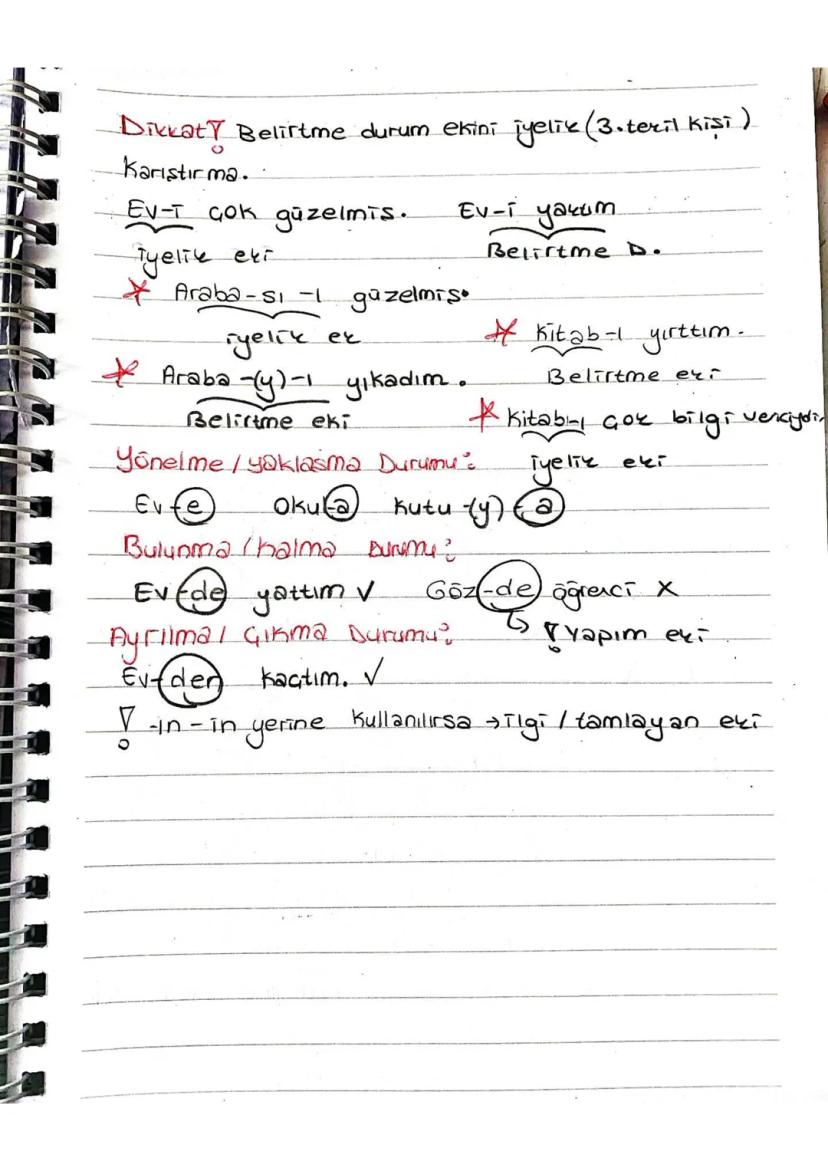 Dikkat! Belirtme durum ekini iyelik (3.tekil kişi)
Karıştırma.
Ev-i çok güzelmiş. Ev-i yaktım
iyelik eki Belirtme D.
* Araba-sı-ı güzelmiş.
iyelik ek * Kitab-ı yırttım.
* Araba-(y)-ı yıkadım. Belirtme eki
Belirtme eki * Kitab-ı çok bilgi vericiydi
Yönelme / yaklaşma Durumu: iyelik eki
Ev-e Okul-a Kutu-(y)-a
Bulunma / Kalma Durumu:
Ev-de yattım √ Göz-de öğrenci X
Ayrılma / Çıkma Durumu: ↳ ! Yapım eki
Ev-den kaçtım. √
! -ın -in yerine kullanılırsa → ilgi / tamlayan eki